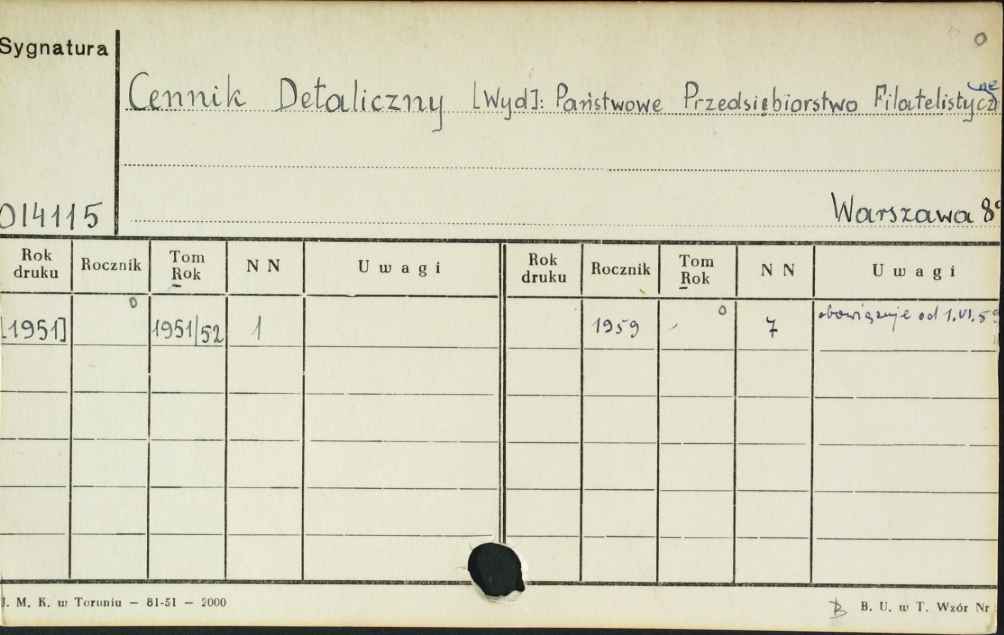 Sygnatura
Cennik Detaliczny [Wyd]: Państwowe Przedsiębiorstwo Filatelistycz
ne
014115
Warszawa 8º
Rok druku Rocznik Tom Rok NN Uwagi Rok druku Rocznik Tom Rok NN Uwagi
[1951] 1951/52 1 1959 7 obowiązuje od 1.VI.59
J. M. K. w Toruniu — 81-51 — 2000
B. U. w T. Wzór Nr